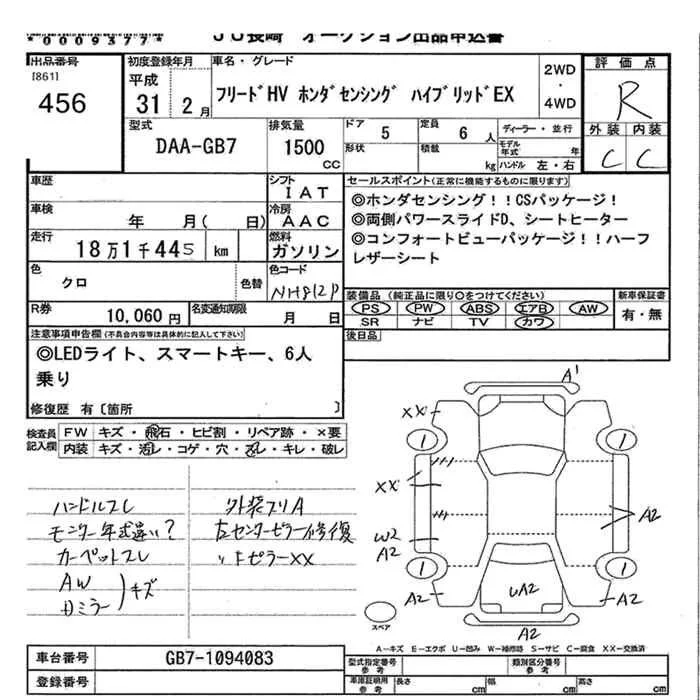 *0009377*
JU長崎 オークション出品申込書
出品番号
[861]
456
初度登録年月
平成
31 2月
車名・グレード
フリードHV ホンダセンシング ハイブリッドEX
2WD
・
4WD
評価点
R
型式
DAA-GB7
排気量
1500
CC
ドア 5
形状
定員 6人
積載 kg
ディーラー・並行
モデル年式 年
ハンドル 左・右
外装 内装
C C
車歴
シフト
IAT
車検 年 月( 日)
冷房
AAC
走行
18万1千445 km
燃料
ガソリン
色
クロ
色替
色コード
NH812P
R券
10,060円
名変通知期限
月 日
セールスポイント(正常に機能するものに限ります)
◎ホンダセンシング！！CSパッケージ！
◎両側パワースライドD、シートヒーター
◎コンフォートビューパッケージ！！ハーフ
レザーシート
装備品 (純正品に限り○をつけてください)
PS PW ABS エアB AW
SR ナビ TV カワ
新車保証書
有・無
後日品
注意事項申告欄(不具合内容等は具体的に記入して下さい)
◎LEDライト、スマートキー、6人
乗り
修復歴 有〔箇所 〕
検査員
記入欄
FW キズ・飛石・ヒビ割・リペア跡・×要
内装 キズ・汚レ・コゲ・穴・スレ・キレ・破レ
ハンドルスレ
モニター年式違い?
カーペットスレ
AW
Gミラー
キズ
外装スリA
左センターピラー修復
〃Fピラー××
A1
XX
1
1
XX
W2
A2
A2
1
1
A2
A2
UA2
A2
スペア
A-キズ E-エクボ U-凹み W-補修跡 S-サビ C-腐食 XX-交換済
車台番号
GB7-1094083
登録番号
型式指定番号
参考
類別区分番号
参考
車庫証明用
参考
長さ cm
幅 cm
高さ cm